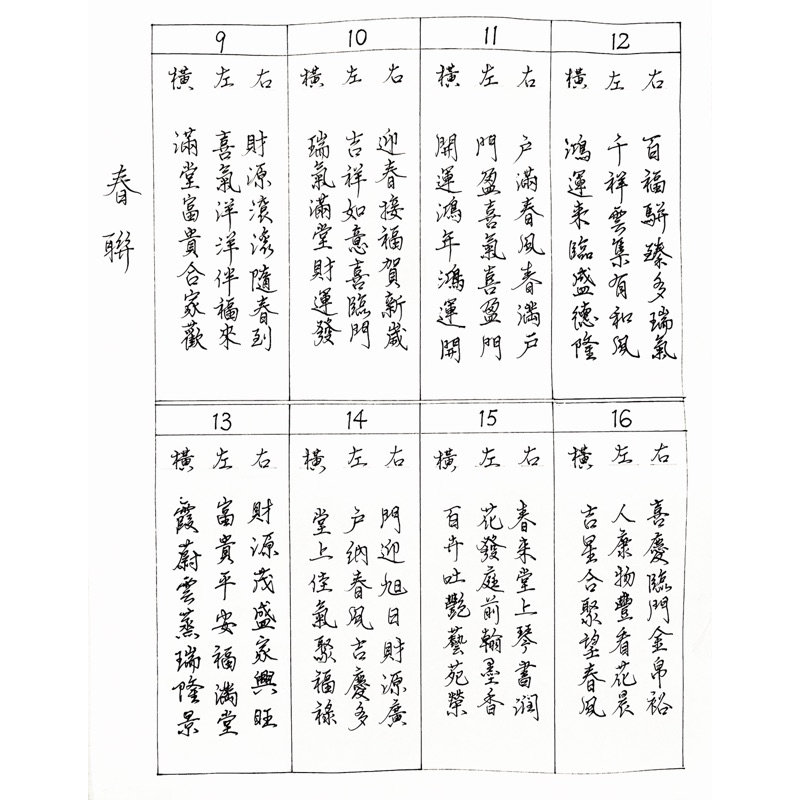 春聯
9
右 財源滾滾隨春到
左 喜氣洋洋伴福來
橫 滿堂富貴合家歡
10
右 迎春接福賀新歲
左 吉祥如意喜臨門
橫 瑞氣滿堂財運發
11
右 戶滿春風春滿戶
左 門盈喜氣喜盈門
橫 開運鴻年鴻運開
12
右 百福駢臻多瑞氣
左 千祥雲集有和風
橫 鴻運来臨盛德隆
13
右 財源茂盛家興旺
左 富貴平安福滿堂
橫 霞蔚雲蒸瑞隆景
14
右 門迎旭日財源廣
左 戶納春風吉慶多
橫 堂上佳氣聚福祿
15
右 春来堂上琴書润
左 花發庭前翰墨香
橫 百卉吐艷藝苑榮
16
右 喜慶臨門金帛裕
左 人康物豐看花晨
橫 吉星合聚望春風